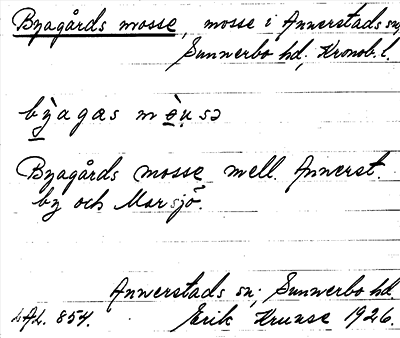 Byagårds mosse, mosse i Annerstads sn,
Sunnerbo hd, Kronob. l.
by̆̀agas mò̤u̦sə
Byagårds mosse mell. Annerst.
by och Marsjö.
Annerstads sn; Sunnerbo hd.
854. Erik Krunse 1926.